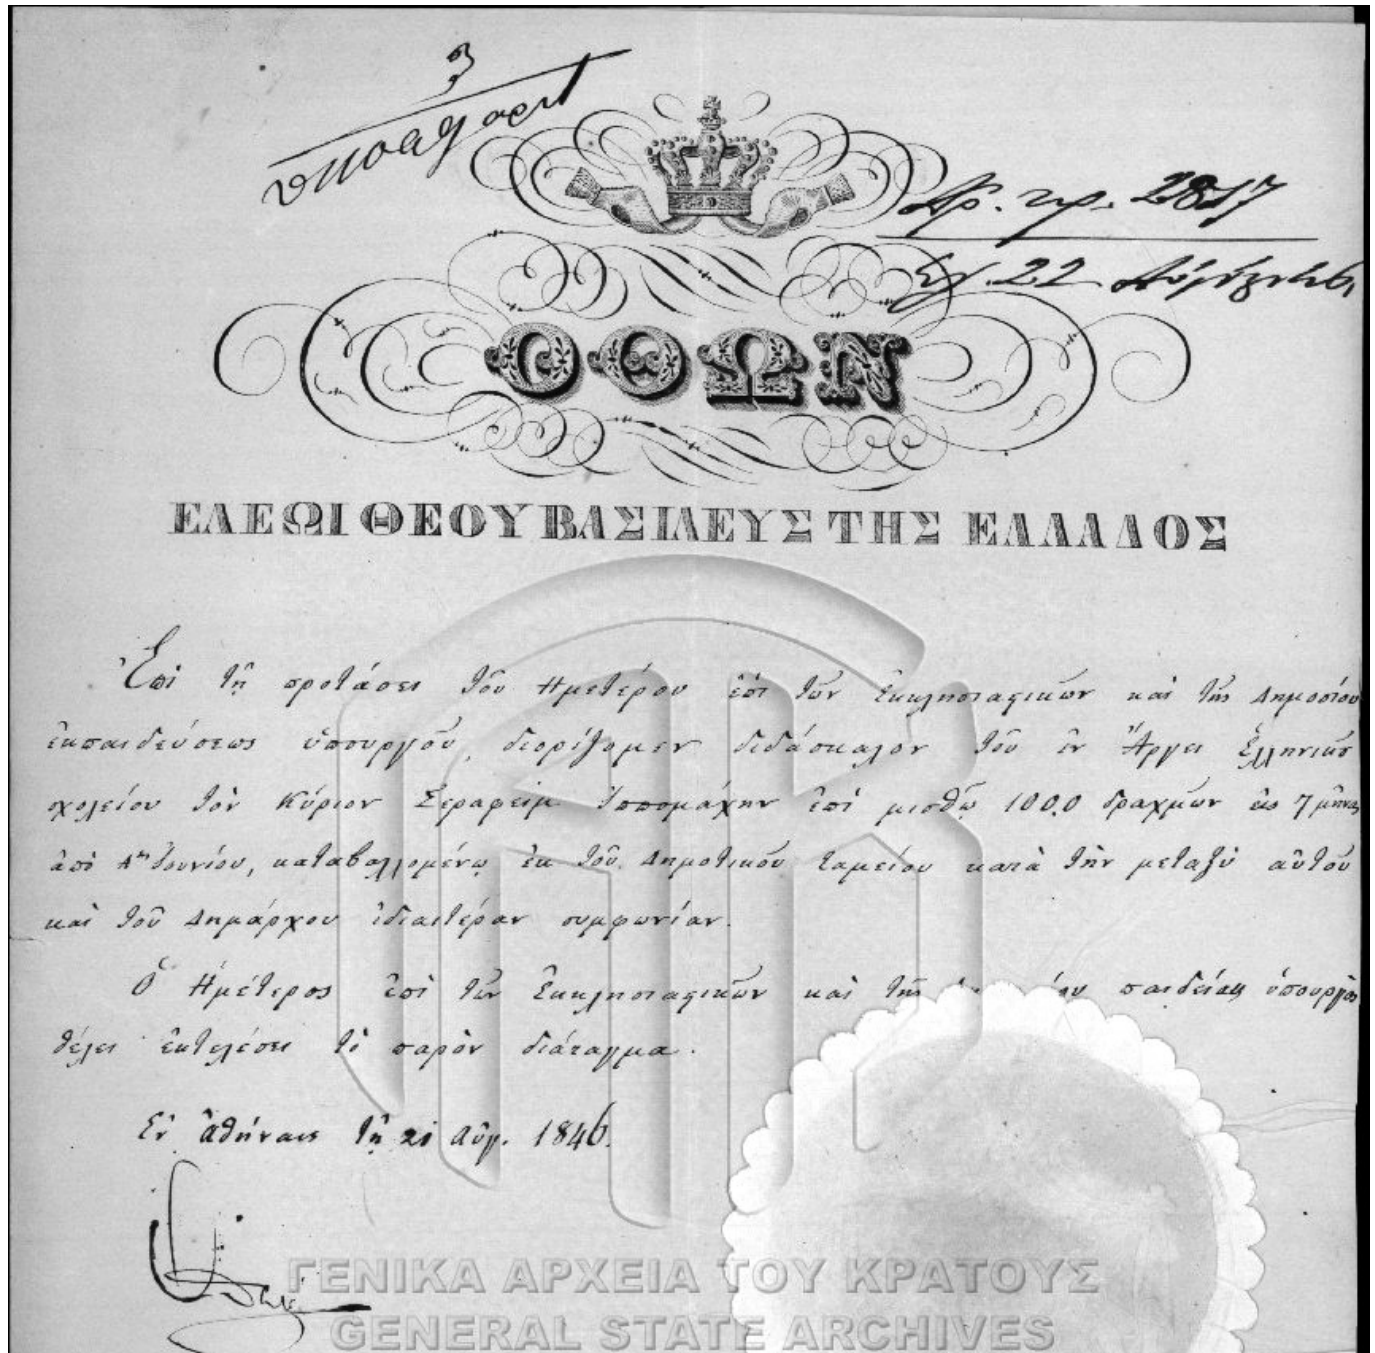 3
Αρ. πρ. 2817
22 Αὐγούστου
ΟΘΩΝ
ΕΛΕΩΙ ΘΕΟΥ ΒΑΣΙΛΕΥΣ ΤΗΣ ΕΛΛΑΔΟΣ
Ἐπὶ τῇ προτάσει τοῦ Ἡμετέρου ἐπὶ τῶν Ἐκκλησιαστικῶν καὶ τῆς Δημοσίου
ἐκπαιδεύσεως ὑπουργοῦ, διορίζομεν διδάσκαλον τοῦ ἐν Ἄργει Ἑλληνικοῦ
σχολείου τὸν Κύριον Σεραφεὶμ Ἱππομάχην ἐπὶ μισθῷ 100.0 δραχμῶν ὡς 7 μῆνας
ἀπὸ Ιουνίου, καταβαλλομένῳ ἐκ τοῦ Δημοτικοῦ ταμείου κατὰ τὴν μεταξὺ αὐτοῦ
καὶ τοῦ Δημάρχου ἰδιαιτέραν συμφωνίαν.
Ὁ Ἡμέτερος ἐπὶ τῶν Ἐκκλησιαστικῶν καὶ τῆς παιδείας ὑπουργὸς
θέλει ἐκτελέσει τὸ παρὸν διάταγμα.
Ἐν Ἀθήναις τῇ 21 Αὐγ. 1846.
ΓΕΝΙΚΑ ΑΡΧΕΙΑ ΤΟΥ ΚΡΑΤΟΥΣ
GENERAL STATE ARCHIVES